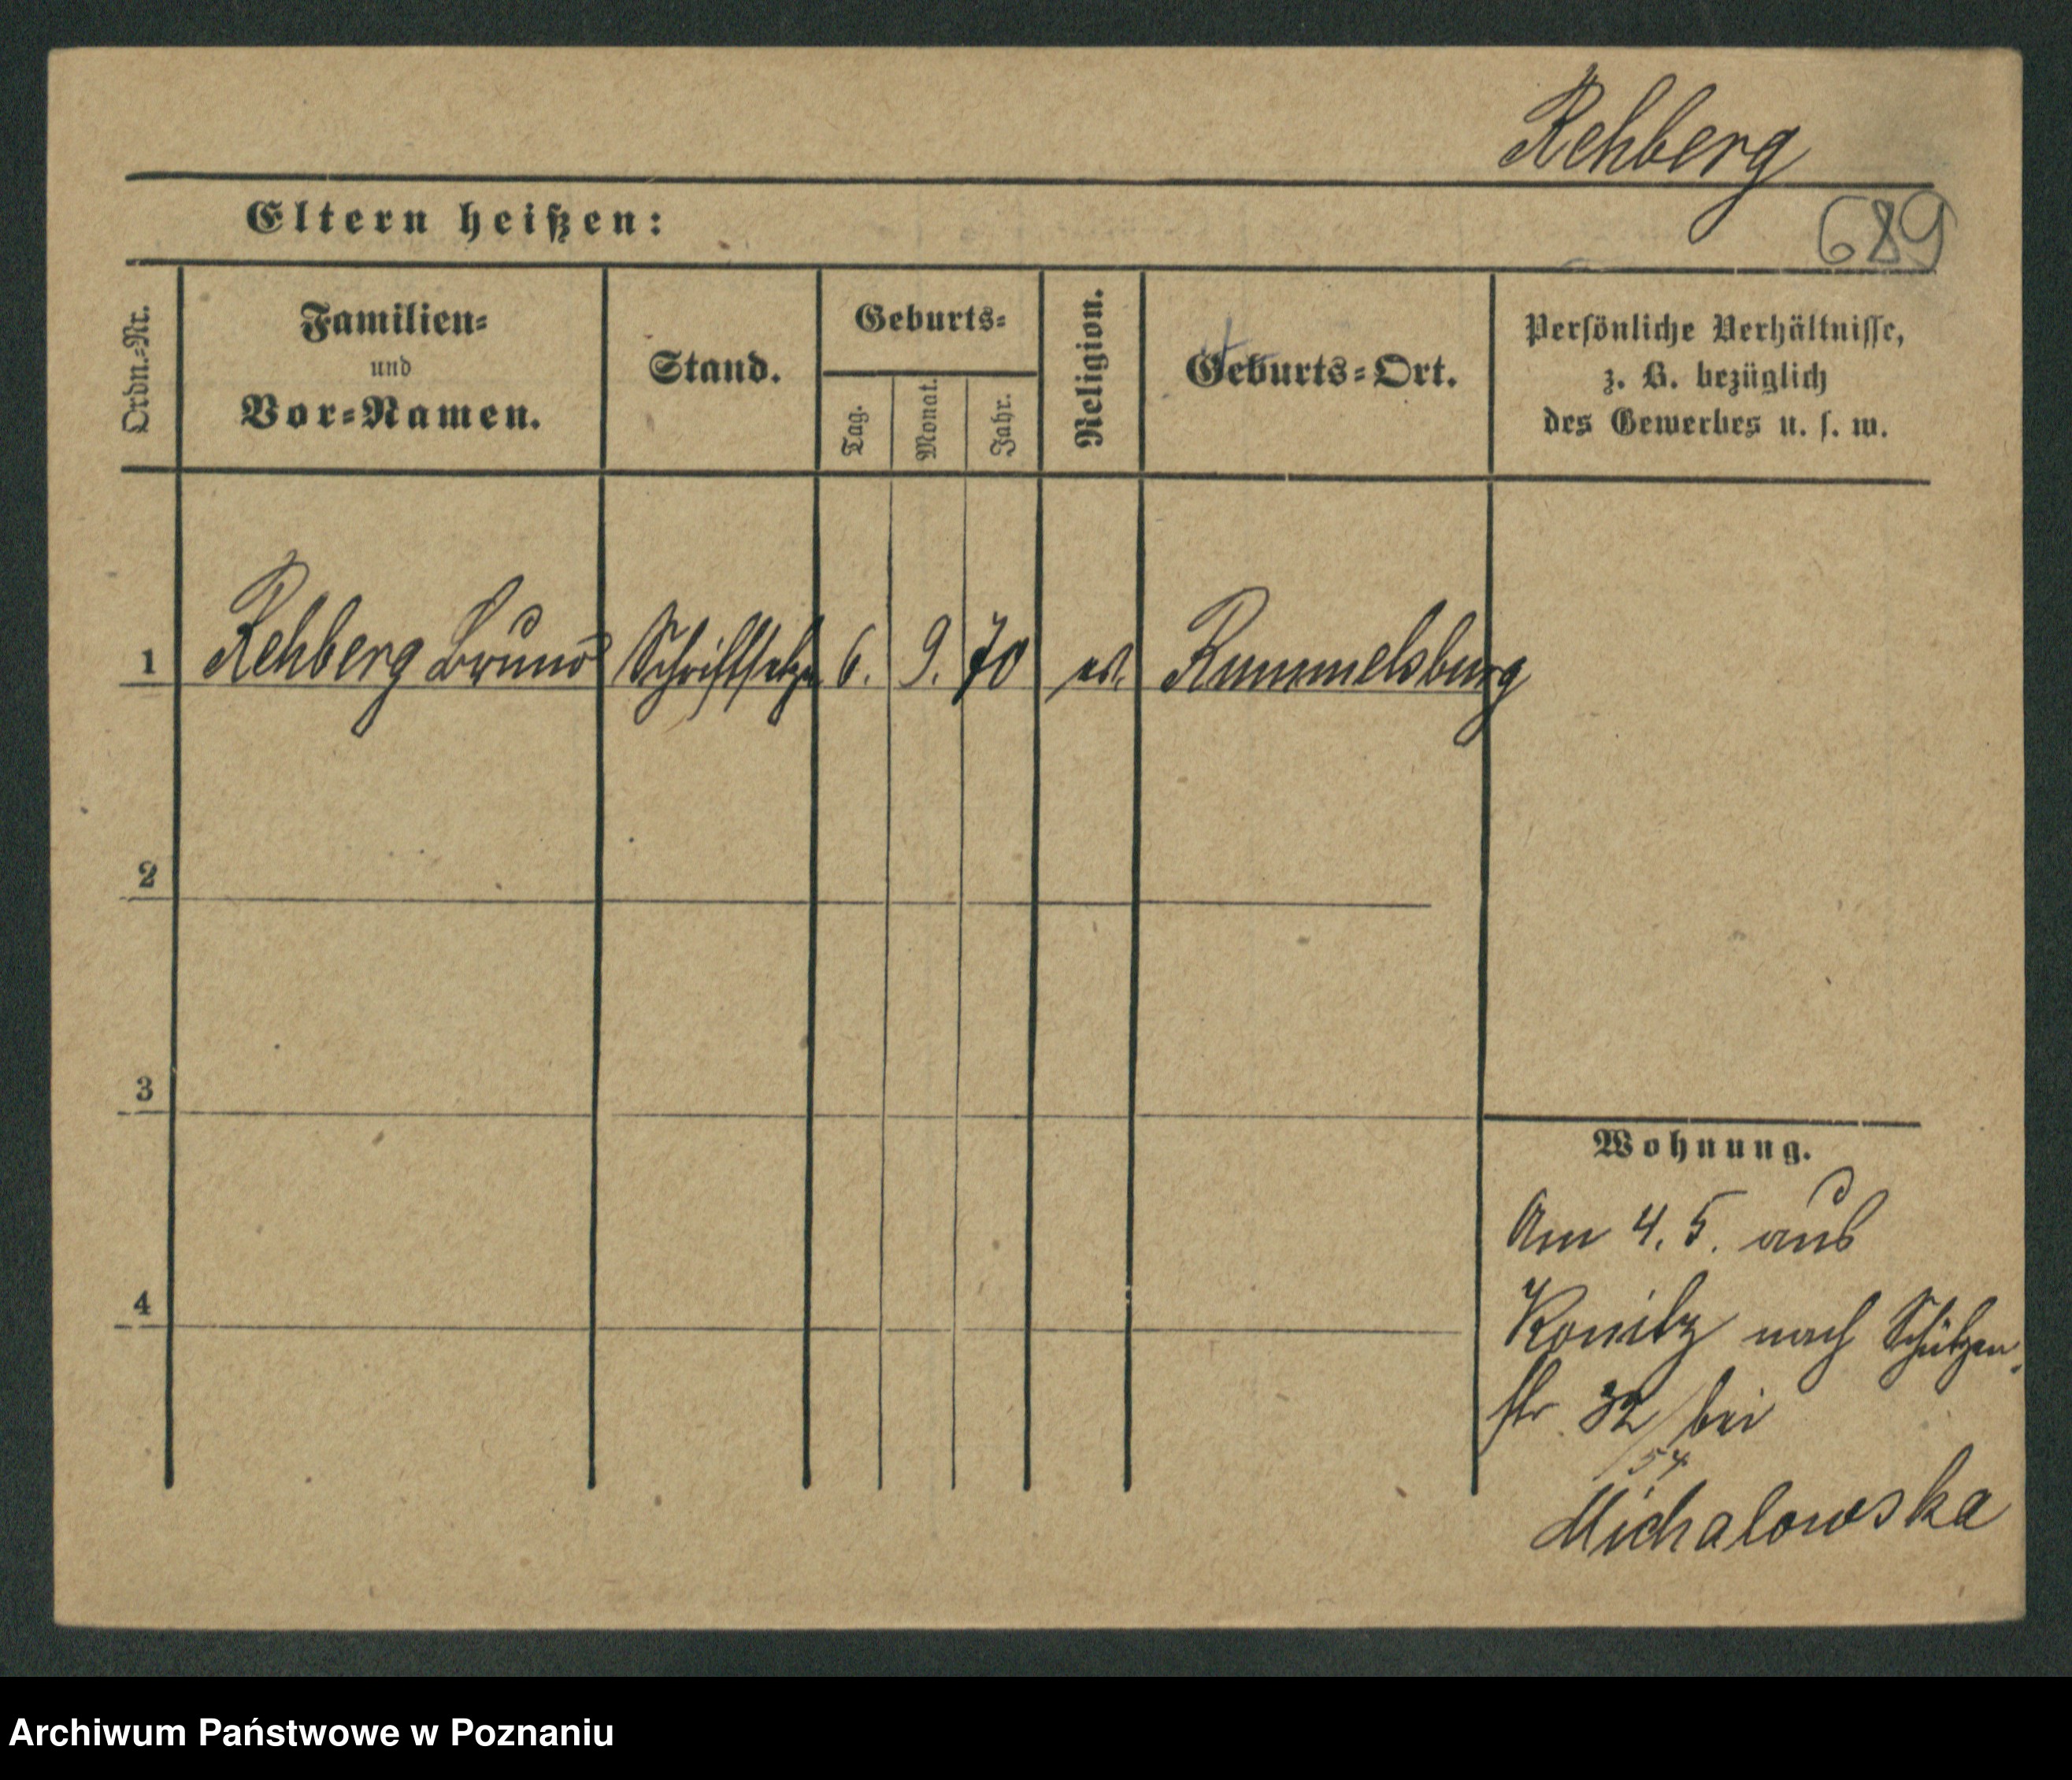 Rehberg
Eltern heißen:
689
Ordn.=Nr.
Familien=
und
Vor=Namen.
Stand.
Geburts=
Tag.
Monat.
Jahr.
Religion.
Geburts=Ort.
Persönliche Verhältnisse,
z. B. bezüglich
des Gewerbes u. s. w.
1 Rehberg Bruno Schriftsetzer 6. 9. 70 ev. Rummelsburg
2
3
4
Wohnung.
Am 4. 5. aus
Konitz nach Schützen-
str. 32 bei
54
Michalowska
Archiwum Państwowe w Poznaniu